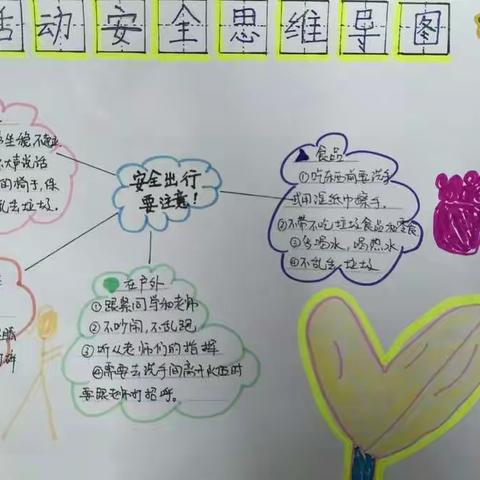 活动安全思维导图
坐稳,不
大声说话
的椅子,保
乱丢垃圾.
安全出行
要注意!
食品
①吃东西前要洗手
或用湿纸巾擦手.
②不带不吃垃圾食品和零食
③多喝水,喝热水
④不乱丢垃圾
在户外
①跟紧同学和老师
②不吵闹,不乱跑
③听从老师们的指挥
④需要去洗手间离开队伍时
要跟老师打招呼。